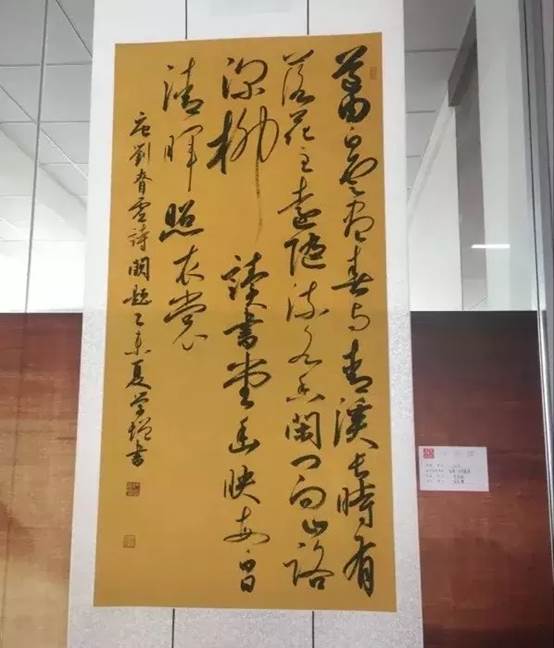 道由白雲盡春与青溪長時有
落花至遠随流水香閑门向山路
深柳讀書堂幽映每白日
清暉照衣裳
唐劉昚虚詩闕題乙未夏学增書